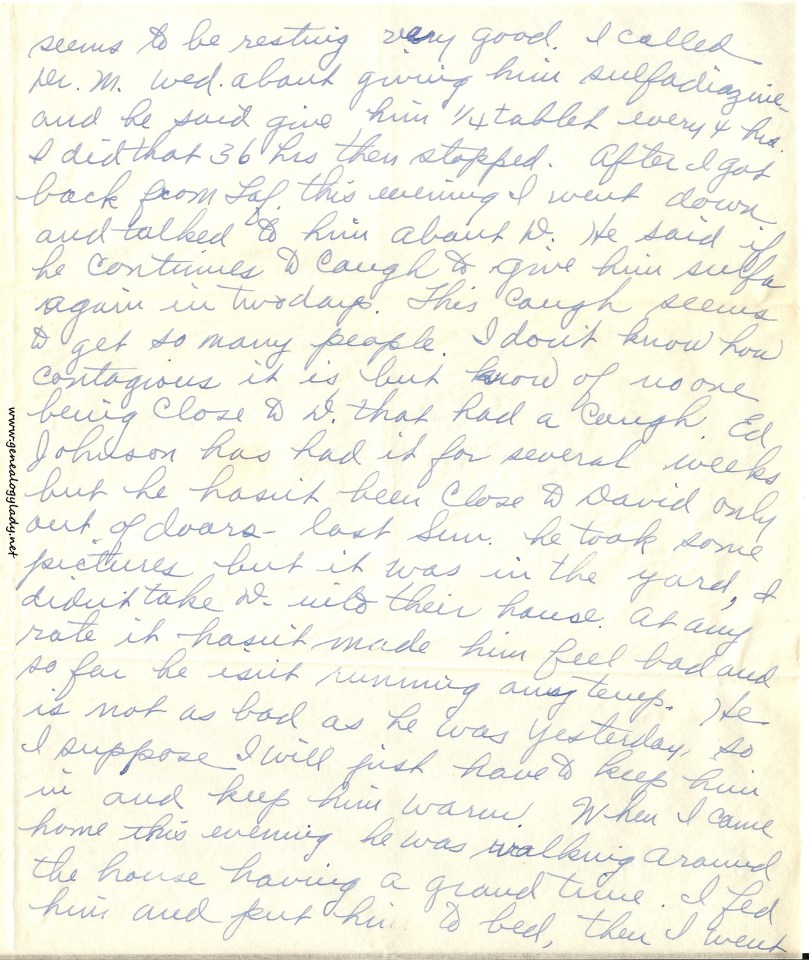 seems to be resting very good. I called
Dr. M. Wed. about giving him sulfadiazine
and he said give him 1/4 tablet every 4 hrs.
I did that 36 hrs then stopped. After I got
back from Laf. this evening I went down
and talked to him about D. He said if
he continues to cough to give him sulfa
again in two days. This cough seems
to get so many people. I don't know how
contagious it is, but know of no one
being close to D. that had a cough. Ed
Johnson has had it for several weeks
but he hasn't been close to David only
out of doors - last Sun. he took some
pictures but it was in the yard, I
didn't take D. into their house. At any
rate it hasn't made him feel bad and
so far he isn't running any temp. He
is not as bad as he was yesterday, so
I suppose I will just have to keep him
in and keep him warm. When I came
home this evening he was walking around
the house having a grand time. I fed
him and put him to bed, then I went
www.genealogylady.net